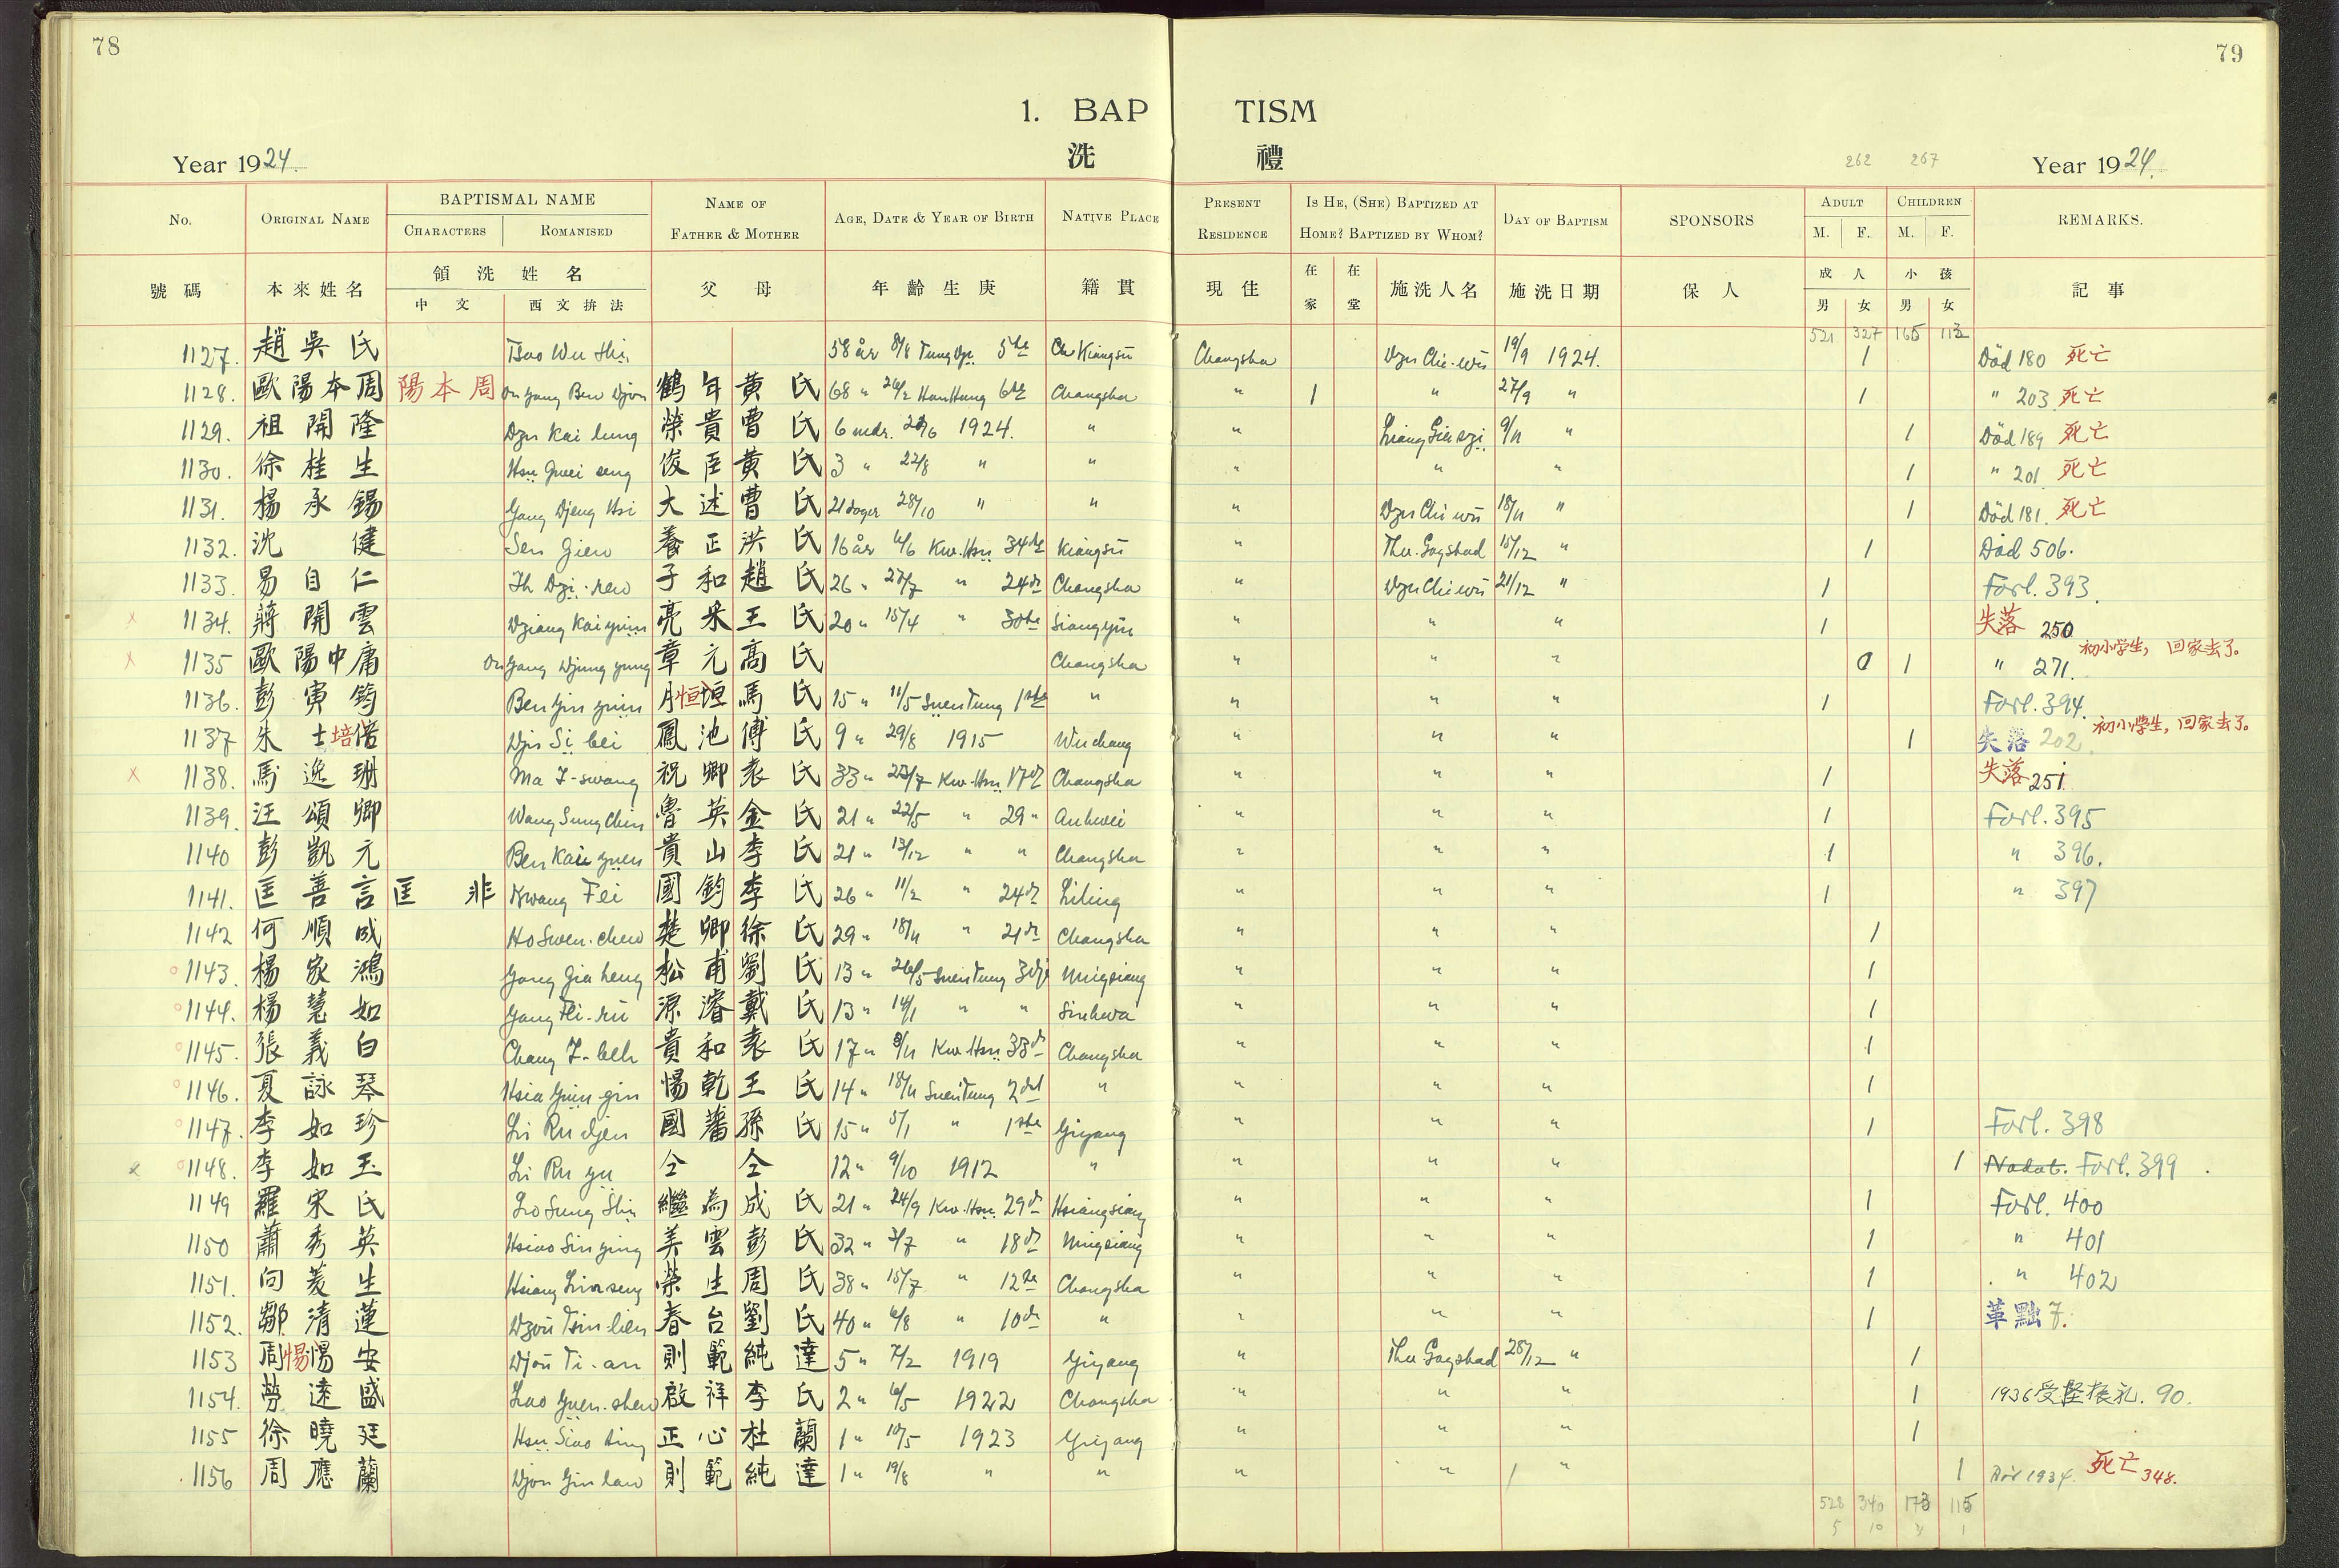 78
79
1. BAP TISM
洗 禮
Year 1924.
262 267
Year 1924.
No. ORIGINAL NAME BAPTISMAL NAME CHARACTERS ROMANISED NAME OF FATHER & MOTHER AGE, DATE & YEAR OF BIRTH NATIVE PLACE PRESENT RESIDENCE IS HE, (SHE) BAPTIZED AT HOME? BAPTIZED BY WHOM? DAY OF BAPTISM SPONSORS ADULT M. F. CHILDREN M. F. REMARKS.
號碼 本來姓名 領洗姓名 中文 西文拚法 父母 年齡生庚 籍貫 現住 在家 在堂 施洗人名 施洗日期 保人 成人 男 女 小孩 男 女 記事
521 327 165 113
1127. 趙吳氏 Tsao Wu Shi 58 år 8/8 5te Kiangsu Changsha Dzu Chi-wu 19/9 1924. 1 Död 180 死亡
1128. 歐陽本周 陽本周 Ou Yang Ben Djou 鶴年 黄氏 68 " 26/2 6te Changsha " 1 " 27/9 " 1 " 203 死亡
1129. 祖開隆 Dzu Kai lung 榮貴 曹氏 6 mdr. 1924. " " 9/11 " 1 Död 189 死亡
1130. 徐桂生 Hsu Gwei seng 俊臣 黄氏 3 " 22/8 " " " " " 1 " 201 死亡
1131. 楊承錫 Yang Djeng Hsi 大述 曹氏 21 dager 28/10 " " " Dzu Chi wu 18/11 " 1 Död 181. 死亡
1132. 沈健 Sen Gien 養正 洪氏 16 år 6/6 Kw. Hsu 34de Kiangsu " Thu. Gogstad 15/12 " 1 Död 506.
1133. 易自仁 Ih Dzi-ren 子和 趙氏 26 " 27/7 " 24de Changsha " Dzu Chi wu 21/12 " 1 Forl. 393.
x 1134. 蔣開雲 Dziang Kai yuin 亮采 王氏 20 " 15/4 " 30te Siangyin " " " 1 失落 250
x 1135 歐陽中庸 Ou Yang Djung yung 章元 高氏 Changsha " " " 0 1 " 271. 初小学生, 回家去了。
1136. 彭寅鈞 Ben Yin yuin 月恒垣 馬氏 15 " 11/5 Suen Tung 1ste " " " " 1 Forl. 394.
1137 朱士培 Dju Si bei 鳳池 傅氏 9 " 29/8 1915 Wuchang " " " 1 失落 202. 初小学生, 回家去了。
x 1138. 馬逸 Ma I-swang 祝卿 袁氏 33 " 23/7 Kw. Hsu 17de Changsha " " " 1 失落 251.
1139. 汪頌卿 Wang Sung Chin 魯英 金氏 21 " 22/5 " 29 " Anhwei " " " 1 Forl. 395
1140 彭凱元 Ben Kai yuen 貴山 李氏 21 " 13/12 " " Changsha " " " 1 " 396.
1141. 匡善言 匡非 Kwang Fei 國鈞 李氏 26 " 11/2 " 24de Liling " " " 1 " 397
1142 何順成 Ho Swen-chen 楚卿 徐氏 29 " 18/11 " 21de Changsha " " " 1
1143. 楊家鴻 Yang Gia heng 松甫 劉氏 13 " 26/5 Suen Tung 3dje " " " 1
1144. 楊慧如 Yang Fei-ru 源濬 戴氏 13 " 14/1 " " Sinhwa " " " 1
1145. 張義白 Chang I-beh 貴和 袁氏 17 " 8/11 Kw. Hsu 33de Changsha " " " 1
1146. 夏詠琴 Hsia Yuin-gin 惕乾 王氏 14 " 18/11 Suen Tung 2det " " " " 1
1147. 李如珍 Li Ru djen 國藩 孫氏 15 " 5/1 " 1ste Yiyang " " " 1 Forl. 398
x 1148. 李如玉 Li Ru yu 仝 仝 12 " 9/10 1912 " " " " 1 Nadat. Forl. 399
1149 羅宋氏 Lo Sung Shi 繼為 成氏 21 " 24/9 Kw. Hsu 29de Hsiangsiang " " " 1 Forl. 400
1150 蕭秀英 Hsiao Siu ying 美雲 彭氏 32 " 3/7 " 18de " " " 1 " 401
1151. 向菱生 Hsiang Lin seng 榮生 周氏 38 " 15/7 " 12te Changsha " " " 1 " 402
1152. 鄒清蓮 Dzou Tsin-lien 春台 劉氏 40 " 6/8 " 10de " " " " 1 革黜 7.
1153 周惕安 Djou Ti-an 則範 純達 5 " 7/2 1919 Yiyang " Thu. Gogstad 28/12 " 1
1154. 勞遠盛 Lao Yuen-shen 啟祥 李氏 2 " 6/5 1922 Changsha " " " 1 1936受堅振礼. 90.
1155 徐曉廷 Hsu Siao ting 正心 杜蘭 1 " 10/5 1923 Yiyang " " " 1
1156 周應蘭 Djou Yin lan 則範 純達 1 " 19/8 " " " " " 1 Dör 1934. 死亡 348.
528 340 173 115
5 10 1